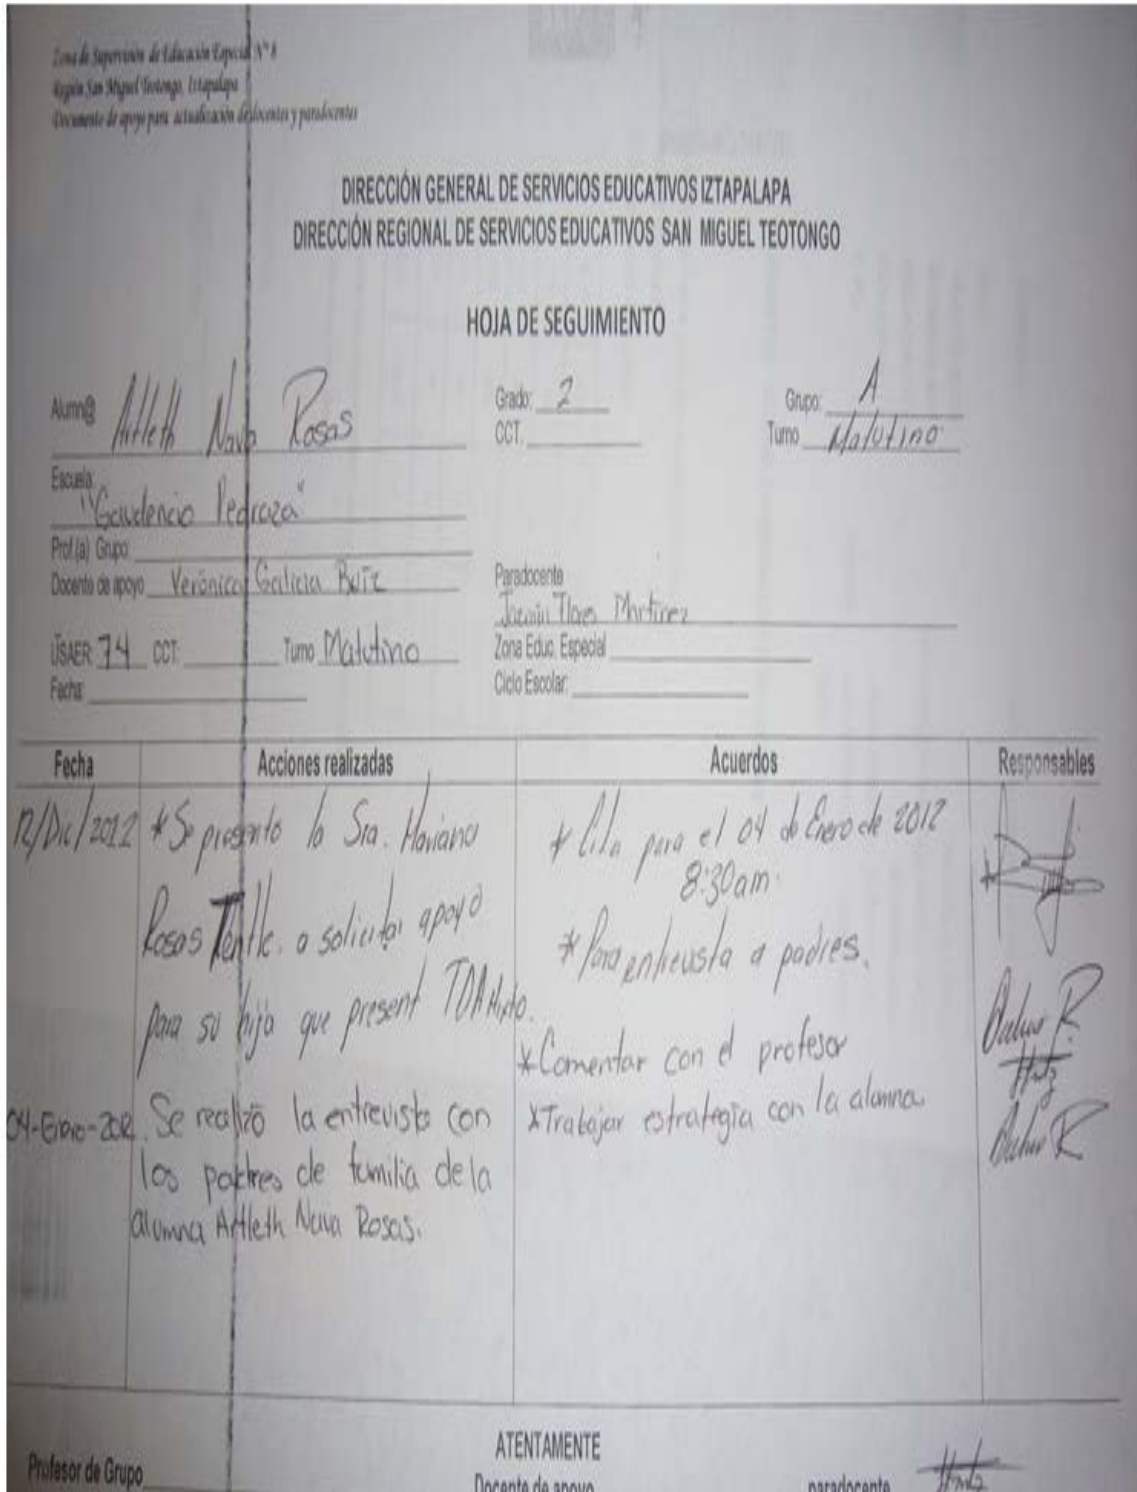 Zona de Supervisión de Educación Especial N° 8
Región San Miguel Teotongo, Iztapalapa
Documento de apoyo para actualización de docentes y paradocentes
DIRECCIÓN GENERAL DE SERVICIOS EDUCATIVOS IZTAPALAPA
DIRECCIÓN REGIONAL DE SERVICIOS EDUCATIVOS SAN MIGUEL TEOTONGO
HOJA DE SEGUIMIENTO
Alumn@ Artleth Nava Rosas Grado: 2 Grupo: A
CCT. Turno Matutino
Escuela:
"Gaudencio Pedraza"
Prof.(a) Grupo:
Docente de apoyo Verónica Galicia Ruíz Paradocente
Jazmín Flores Martínez
USAER: 74 CCT: Turno Matutino Zona Educ. Especial
Fecha: Ciclo Escolar:
Fecha Acciones realizadas Acuerdos Responsables
12/Dic/2012 * Se presento la Sra. Mariana
Rosas a solicitar apoyo
para su hija que present TDA Mixto.
* Cita para el 04 de Enero de 2012
8:30am.
* Para entrevista a padres.
04-Enero-2012. Se realizó la entrevista con
los padres de familia de la
alumna Artleth Nava Rosas.
* Comentar con el profesor
* Trabajar estrategia con la alumna.
ATENTAMENTE
Profesor de Grupo Docente de apoyo paradocente